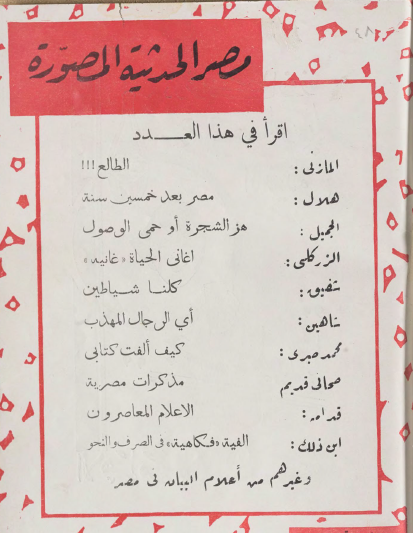 مصر الحديثة المصورة
اقرأ في هذا العـــدد
المازنى : الطالع!!!
هلال : مصر بعد خمسين سنة
الجميل : هز الشجرة أو حمى الوصول
الزركلى : اغانى الحياة «غانيه»
شفيق : كلنا شياطين
شاهين : أي الرجال المهذب
محمد صبرى : كيف ألفت كتابى
صحافى قديم مذكرات مصرية
قدامه : الاعلام المعاصرون
ابن ذلك : الفية «فكاهية» فى الصرف والنحو
وغيرهم من أعلام البيان فى مصر